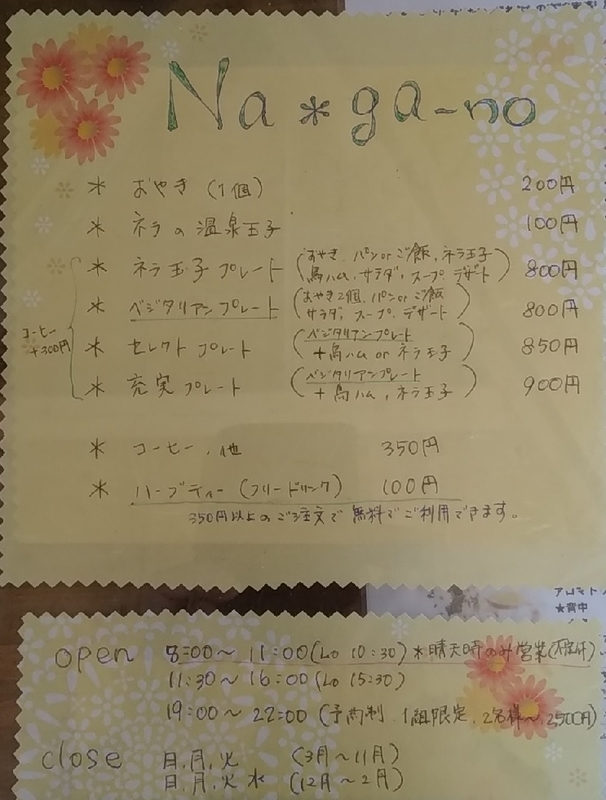 Na*ga-no
* おやき (1個) 200円
* ネラの温泉玉子 100円
* ネラ玉子プレート (おやき、パン or ご飯、ネラ玉子 鳥ハム、サラダ、スープ デザート) 800円
* ベジタリアンプレート (おやき2個、パン or ご飯 サラダ、スープ、デザート) 800円
* セレクトプレート (ベジタリアンプレート +鳥ハム or ネラ玉子) 850円
* 充実プレート (ベジタリアンプレート +鳥ハム、ネラ玉子) 900円
コーヒー
+300円
* コーヒー、他 350円
* ハーブティー (フリードリンク) 100円
350円以上のご注文で無料でご利用できます。
★背中
open 8:00〜11:00 (Lo 10:30) *晴天時のみ営業
11:30〜16:00 (Lo 15:30)
19:00〜22:00 (予約制、1組限定、2名様〜2500円)
close 日、月、火 (3月〜11月)
日、月、火 水 (12月〜2月)